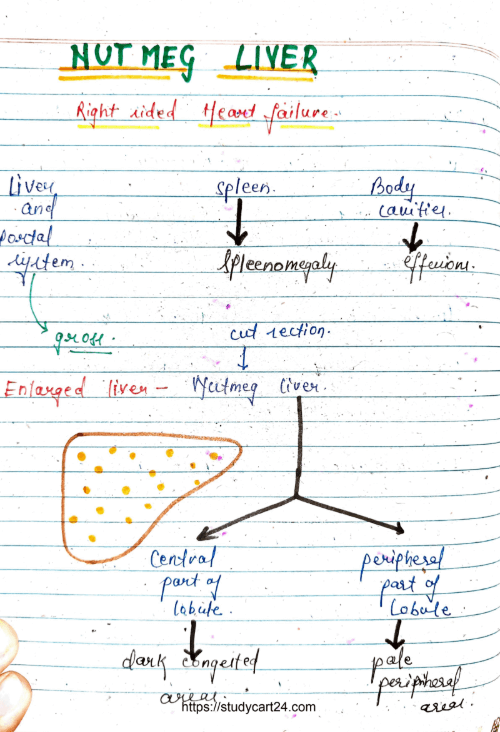 NUTMEG LIVER
Right sided Heart failure.
Liver
and
portal
system.
Spleen.
Spleenomegaly
Body
cavities.
effusions.
gross.
cut section.
Enlarged liver - Nutmeg liver.
Central
part of
lobule.
dark congested
areas.
peripheral
part of
Lobule
pale
peripheral
areas.
https://studycart24.com